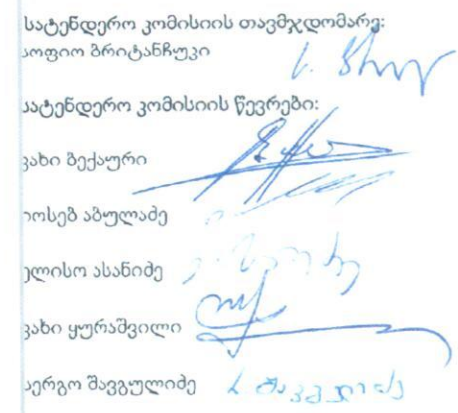 სატენდერო კომისიის თავმჯდომარე:
სოფიო ბრიტანჩუკი
სატენდერო კომისიის წევრები:
ვახი ბექაური
იოსებ აბულაძე
ელისო ასანიძე
ვახი ყურაშვილი
სერგო შავგულიძე